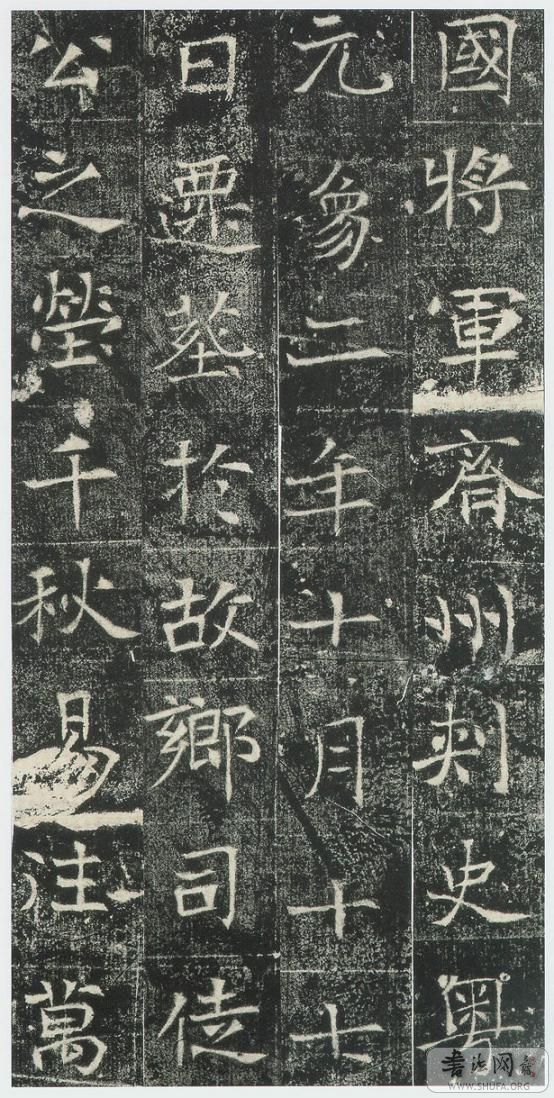 國將軍齊州刾史粤
元象二年十月十七
日遷塟於故鄉司徒
公之塋千秋易注萬
書法网
WWW.SHUFA.ORG